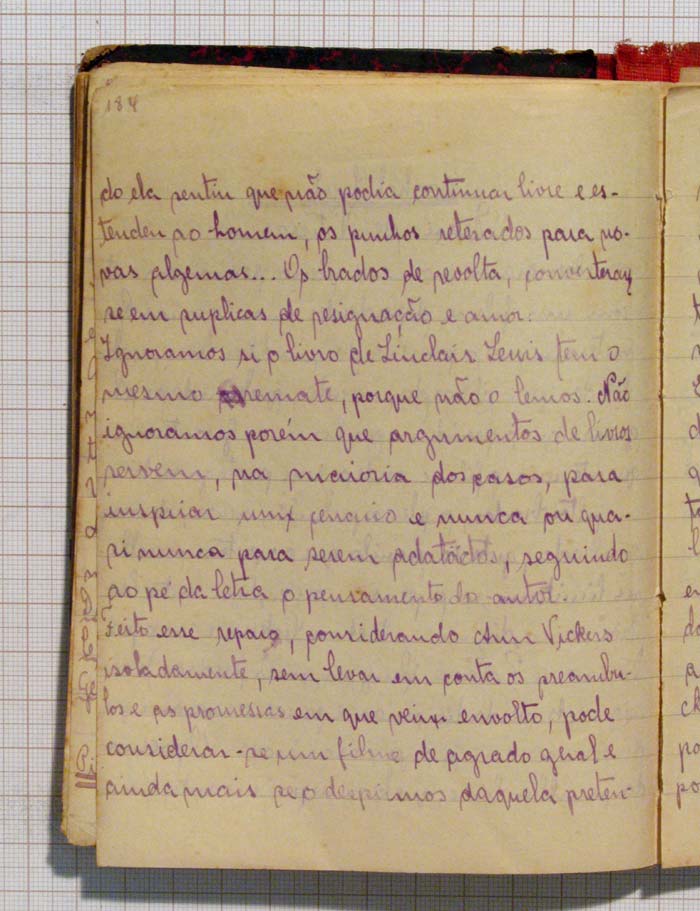 184
do ela sentiu que não podia continuar livre e es-
tendeu ao homem, os punhos reterados para no-
vas algemas... Os brados de revolta, converteram
se em suplicas de resignação e amor.
Ignoramos si o livro de Sinclair Lewis tem o
mesmo remate, porque não o lemos. Não
ignoramos porém que argumentos de livros
servem, na maioria dos casos, para
inspirar um cenario e nunca ou qua-
si nunca para serem adatados, seguindo
ao pé da letra o pensamento do autor.
Feito esse reparo, considerando Ann Vickers
isoladamente, sem levar em conta os preambu-
los e as promessas em que veiu envolto, pode
considerar-se um filme de agrado geral e
ainda mais se o despirmos daquela preten-